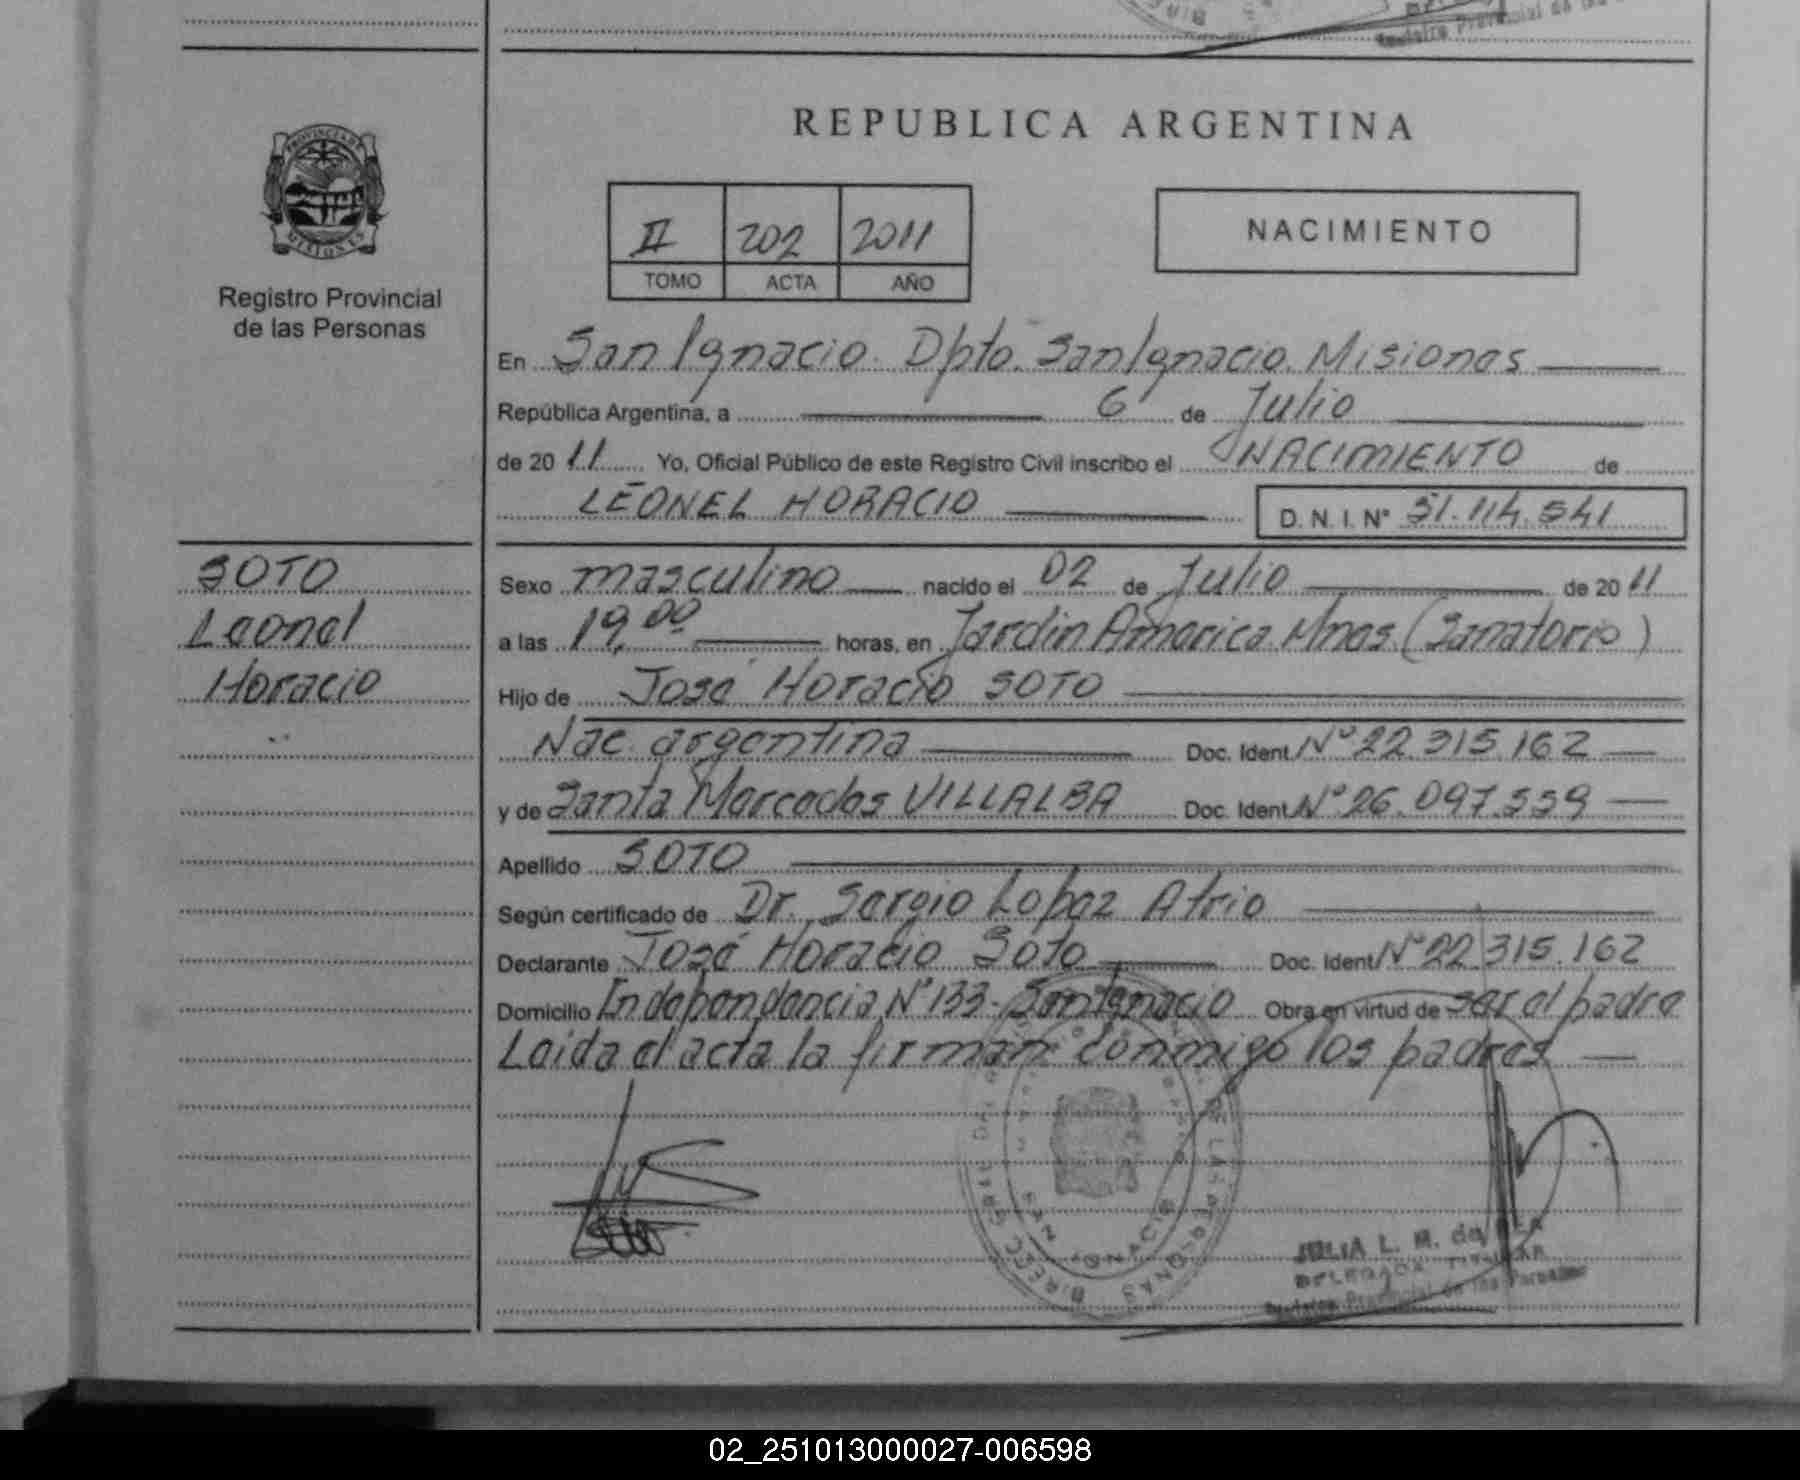 REPUBLICA ARGENTINA
PROVINCIA DE
MISIONES
Registro Provincial
de las Personas
II 202 2011
TOMO ACTA AÑO
NACIMIENTO
En San Ignacio. Dpto. San Ignacio. Misiones
República Argentina, a 6 de Julio
de 20 11 Yo, Oficial Público de este Registro Civil inscribo el NACIMIENTO de
LEONEL HORACIO D. N. I. N° 51.114.541
SOTO
Leonel
Horacio
Sexo masculino nacido el 02 de Julio de 20 11
a las 19,00 horas, en Jardin America. Mnes. (Sanatorio)
Hijo de José Horacio SOTO
Nac. argentina Doc. Ident. N° 22.315.162
y de Santa Mercedes VILLALBA Doc. Ident. N° 26.097.559
Apellido SOTO
Según certificado de Dr. Sergio Lopez Atrio
Declarante José Horacio Soto Doc. Ident. N° 22.315.162
Domicilio Independencia N° 133- San Ignacio Obra en virtud de ser el padre
Leida el acta la firman conmigo los padres
SAN IGNACIO
JULIA L. M. de
DELEGADA TITULAR
Registro Provincial de las Personas
02_251013000027-006598